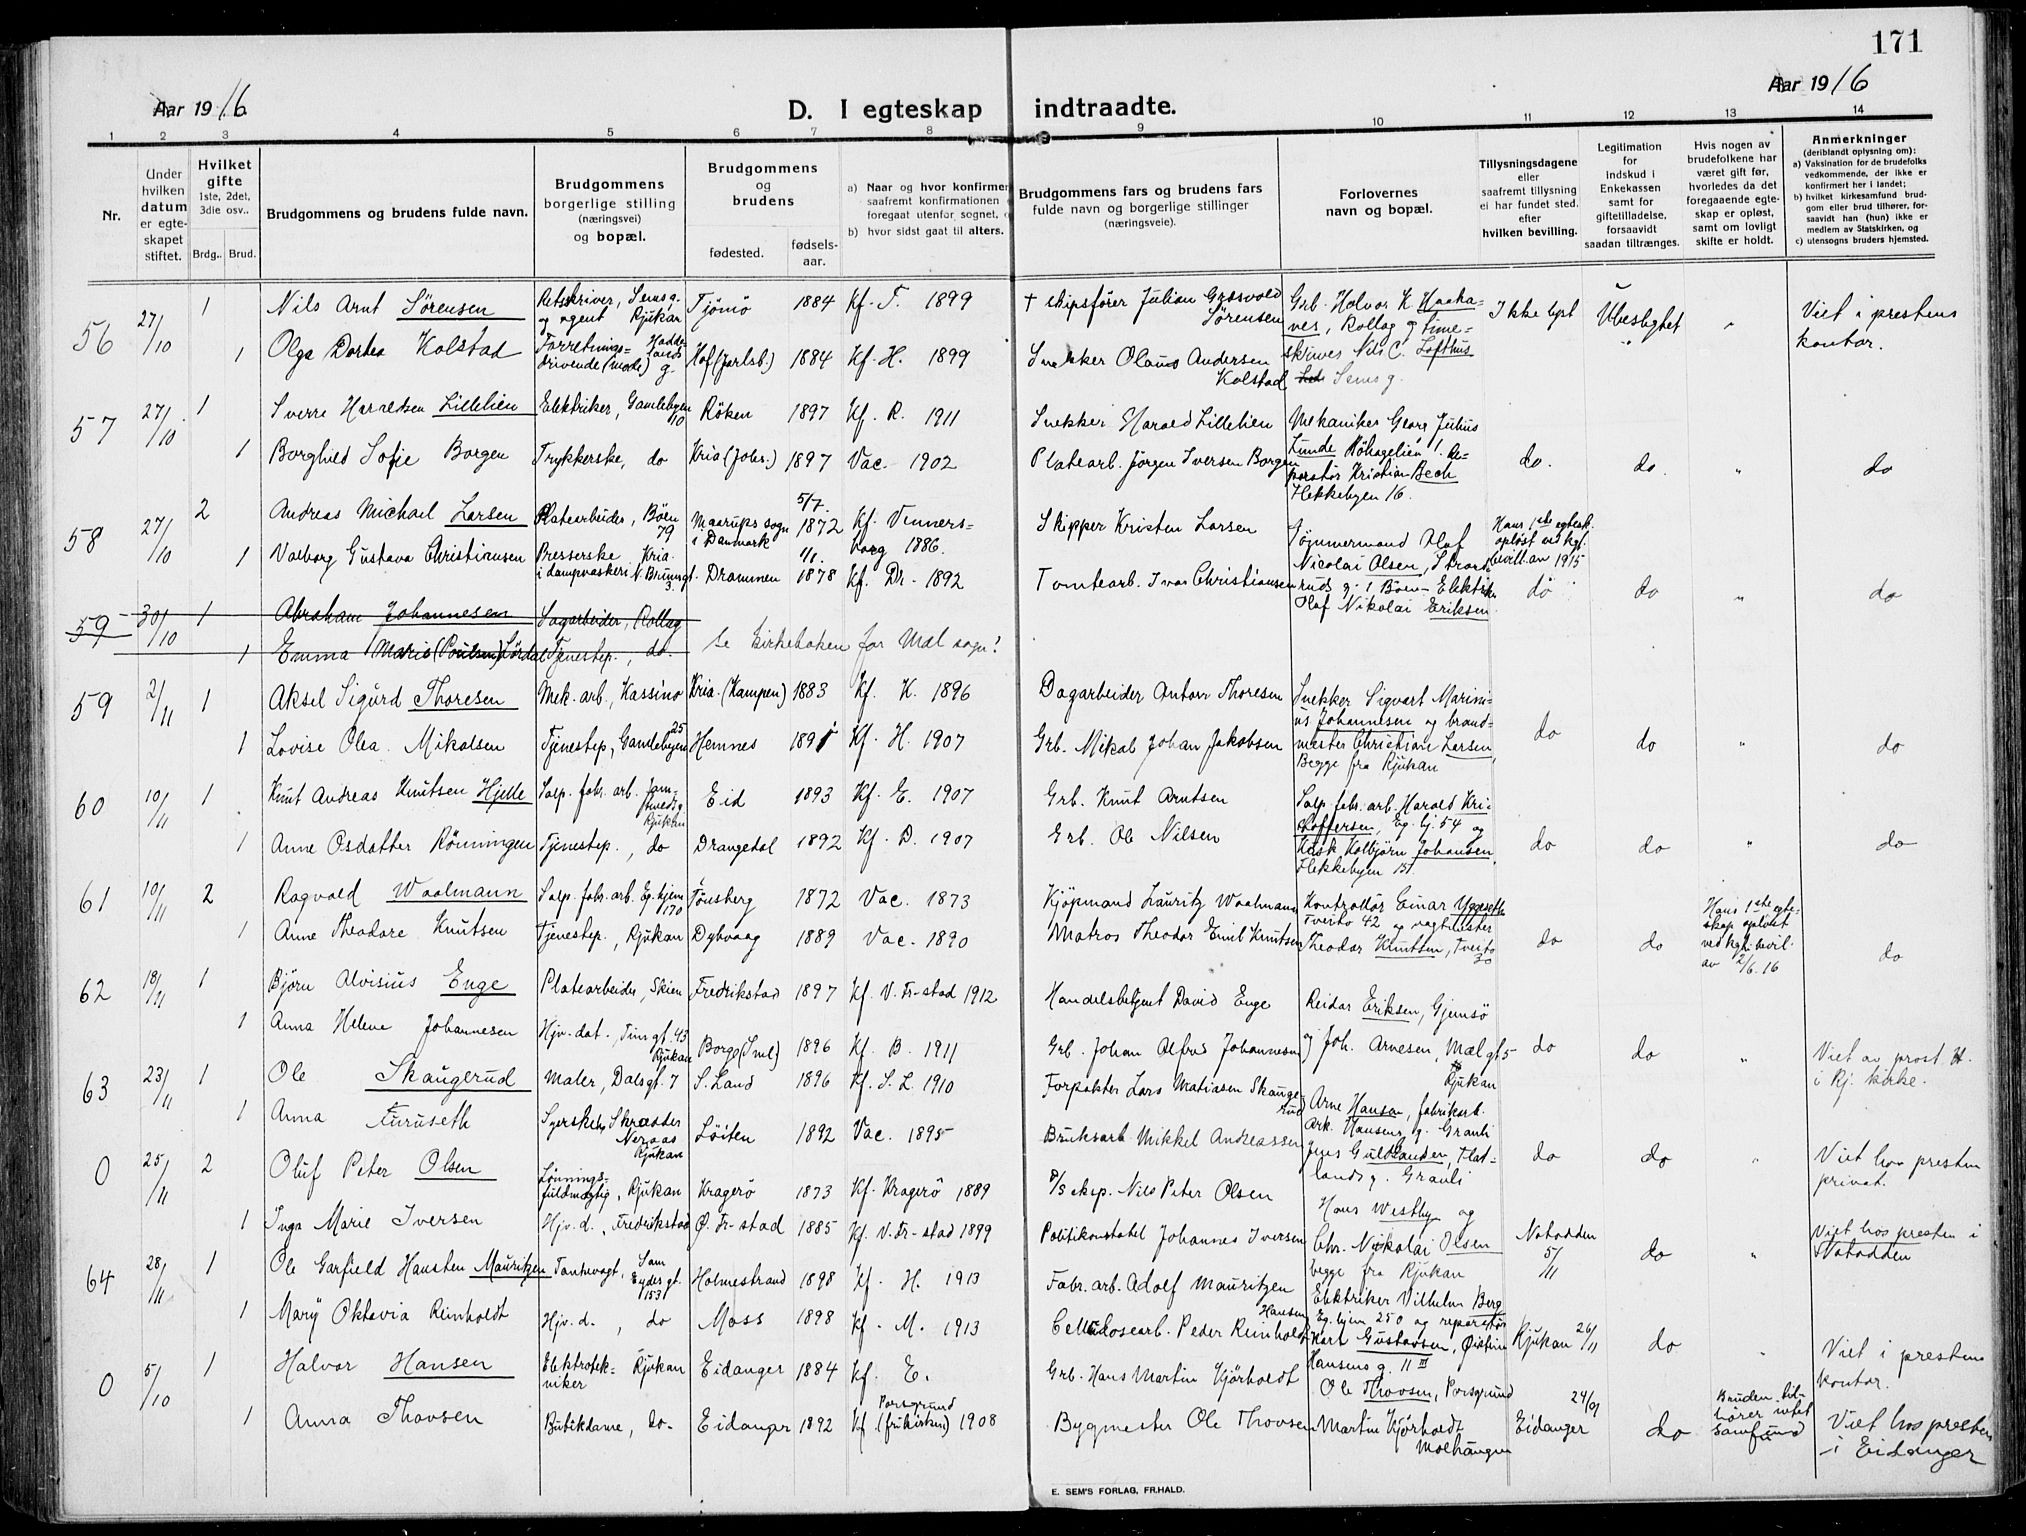 171
Aar 1916. D. I egteskap indtraadte. Aar 1916
1 2 3 4 5 6 7 8 9 10 11 12 13 14
Nr.
Under hvilken datum er egteskapet stiftet.
Hvilket gifte 1ste, 2det, 3die osv..
Brdg.. Brud.
Brudgommens og brudens fulde navn.
Brudgommens borgerlige stilling (næringsvei) og bopæl.
Brudgommens og brudens
fødested.
fødselsaar.
a) Naar og hvor konfirmer saafremt konfirmationen foregaat utenfor sognet,
b) hvor sidst gaat til alters.
Brudgommens fars og brudens fars fulde navn og borgerlige stillinger (næringsveie).
Forlovernes navn og bopæl.
Tillysningsdagene eller saafremt tillysning ei har fundet sted. efter hvilken bevilling.
Legitimation for indskud i Enkekassen samt for giftetilladelse, forsaavidt saadan tiltrænges.
Hvis nogen av brudefolkene har været gift før, hvorledes da det foregaaende egteskap er opløst, samt om lovligt skifte er holdt.
Anmerkninger (deriblandt oplysning om):
a) Vaksination for de brudefolks vedkommende, der ikke er konfirmert her i landet;
b) hvilket kirkesamfund brudgom eller brud tilhører, forsaavidt han (hun) ikke er medlem av Statskirken, og
c) utensogns bruders hjemsted.
56 27/10 1 Nils Arnt Sørensen Retsskriver, Sems g. og agent Rjukan Tjømø 1884 Kf. T. 1899 + skipsfører Julian Græsvold Sørensen Grb. Halvor K. Haakanes, Rollag g Timeskrives Nils C. Lofthus Sems g. Ikke lyst Ubeslegtet " Viet i prestens kontor.
1 Olga Dortea Kolstad Forretningsdrivende (mode) g. Hof (Jarlsb.) 1884 Kf. H. 1899 Snekker Olaus Andersen Kolstad
57 27/10 1 Sverre Haraldsen Lillelien Elektriker, Gamlebyen 110 Røken 1897 Kf. R. 1911 Snekker Harald Lillelien Mekaniker Georg Julius Lunde Kristian Bech Flekkebyen 16. do. do. " do
1 Borghild Sofie Borgen Trykkerske, do Kria (Johs.) 1897 Vac. 1902 Platearb. Jørgen Iversen Borgen
58 27/10 2 Andreas Michael Larsen Platearbeider, Bøen 79 Maarups sogn i Danmark 5/7. 1872 Kf. Vinnersborg 1886. Skipper Kristen Larsen Tømmermand Olaf Nicolai Olsen, Elektriker Olaf Nikolai Eriksen Hans 1ste egtesk. opløst ved kgl. bevill. av 1915 do do " do
1 Valborg Gustava Christiansen Presserske, Kria. i dampvaskeri N. Brunngt. 3. Drammen 1/1. 1878 Kf. Dr. 1892 Tomtearb. Ivar Christiansen
59 30/10 1 Abraham Johannesen Sagarbeider, Rollag
1 Emma Marie (Poulsen) Lørdal Tjenestep., do. Se kirkeboken for Mæl sogn!
59 2/11 1 Aksel Sigurd Thoresen Mek. arb., Kassino Kria. (Kampen) 1883 Kf. K. 1896 Dagarbeider Anton Thoresen Snekker Sigvart Marinius Johannesen og brandmester Christian Larsen, Begge fra Rjukan do do " do
1 Lovise Olea Mikalsen Tjenestep, Gamlebyen 25 Hemnes 1891 Kf. H. 1907 Grb. Mikal Johan Jakobsen
60 10/11 1 Knut Andreas Knutsen Hjelle Salp. fabr. arb. Rjukan Eid 1893 Kf. E. 1907 Grb. Knut Arntsen Salp. fabr. arb. Harald Kristoffersen, Eg. hj. 54 og Kusk Kolbjørn Johansen, Flekkebyen 131. do do " do
1 Anne Osdatter Rønningen Tjenestep., do Drangedal 1892 Kf. D. 1907 Grb. Ole Nilsen
61 10/11 2 Ragvald Waalmann Salp. fabr. arb. Eg. hjem 170 Tønsberg 1872 Vac. 1873 Kjøpmand Lauritz Waalmann Kontrollør Einar Yggeseth Tveito 42 og vagtmester Theodor Knutsen, Tveito 30 do do Hans 1ste egteskap opløst ved kgl. bevil. av 2/6.16 do
1 Anne Theodore Knutsen Tjenestep., Rjukan Dybvaag 1889 Vac. 1890 Matros Theodor Emil Knutsen
62 18/11 1 Bjørn Alvisius Enge Platearbeider, Skien Fredrikstad 1897 Kf. V. Fr-stad 1912 Handelsbetjent David Enge Reidar Eriksen, Gjemsø og Joh. Arnesen, Mælgt 5 Rjukan do do " Viet av prost H. i Rj. kirke.
1 Anna Helene Johannesen Hjv. dat., Tinngt. 43 Rjukan Borge (Sml) 1896 Kf. B. 1911 Grb. Johan Alfred Johannesen
63 23/11 1 Ole Skaugerud Maler, Dalsgt. 7 S. Land 1896 Kf. S. L. 1910 Forpakter Lars Matiasen Skaugerud Arne Hansen, fabrikarb. Ark. Hansens g. Grauli Jens Guldlanden, Flatlands g. Grauli do do " Viet hos presten privat.
1 Anna Furuseth Syerske Skræder Neraas Rjukan Løiten 1892 Vac. 1895 Bruksarb. Mikkel Andreassen
0 25/11 2 Oluf Peter Olsen Lønningsfuldmægtig, Rjukan Kragerø 1873 Kf. Kragerø 1889 D/S skip. Nils Peter Olsen Hans Westby og Chr. Nikolai Olsen begge fra Rjukan Notodden 5/11 do " Viet hos presten i Notodden
1 Inga Marie Iversen Hjv. d., Fredrikstad Ø. Fr-stad 1885 Kf. V. Fr-stad 1899 Politikonstabel Johannes Iversen
64 28/11 1 Ole Garfield Hansten Mauritzen Tanntevagt, Sam Eydes gt. 153 Holmestrand 1898 Kf. H. 1913 Fabr. arb. Adolf Mauritzen Elektriker Vilhelm Berg Eg. hjem 250 og reparatør Karl Gustavsen, Øistein Hansens g. II III Rjukan 26/11 do " Viet i prestens kontor.
1 Mary Oktavia Reinholdt Hjv. d., do Moss 1898 Kf. M. 1913 Cellulosearb. Peder Hansen Reinholdt
0 5/10 1 Halvor Hansen Elektrotekniker Rjukan Eidanger 1884 Kf. E. Grb. Hans Martin Kjørholdt Ole Thovsen, Porsgrund Martin Kjørholdt Eidanger 24/9 do Bruden tilhører intet samfund Viet hos presten i Eidanger
1 Anna Thovsen Butikdame, do. Eidanger 1892 Kf. Porsgrund (frikirken) 1908 Bygmester Ole Thovsen
E. SEM'S FORLAG, FR.HALD.